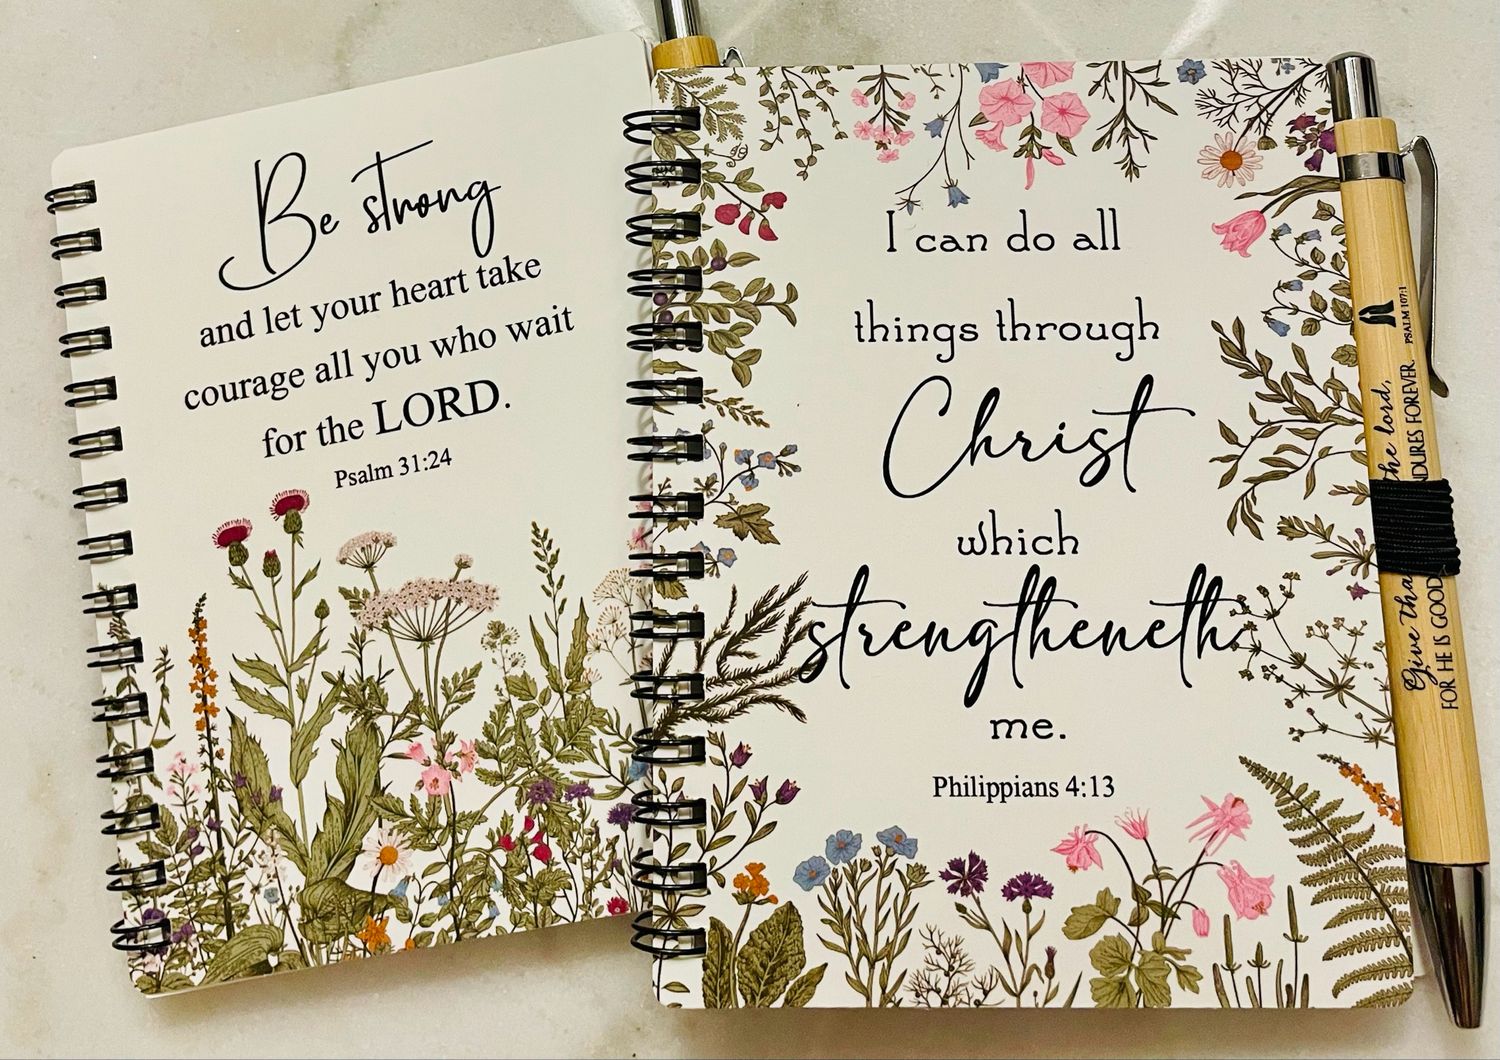 Be strong
and let your heart take
courage all you who wait
for the LORD.
Psalm 31:24
I can do all
things through
Christ
which
strengtheneth
me.
Philippians 4:13
Give the lord,
FOR HE IS GOOD FOREVER.
PSALM 107:1